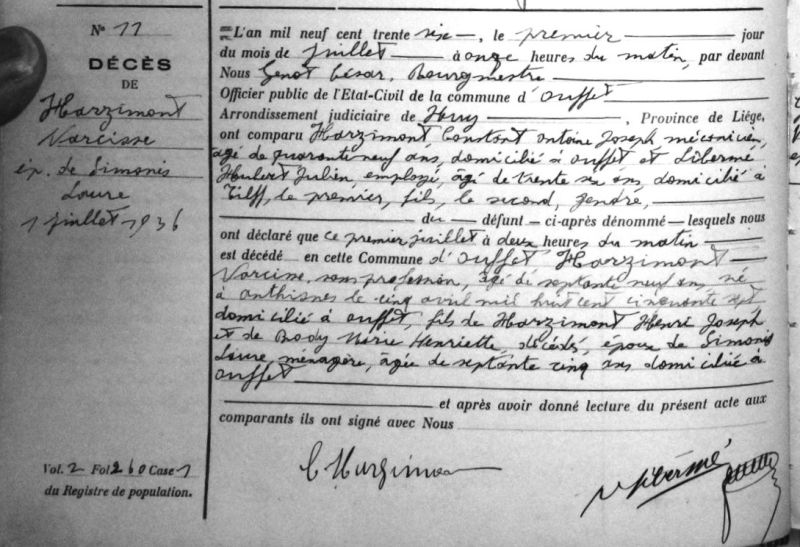 N° 11
DÉCÈS
DE
Harzimont
Narcisse
ép. de Simonis
Laure
1 juillet 1936
Vol. 2 Fol 260 Case 1
du Registre de population.
L'an mil neuf cent trente six, le premier jour
du mois de juillet à onze heures du matin, par devant
Nous Genot César, Bourgmestre
Officier public de l'Etat-Civil de la commune d'Ouffet
Arrondissement judiciaire de Huy, Province de Liége,
ont comparu Harzimont Constant Antoine Joseph mécanicien,
âgé de quarante neuf ans, domicilié à Ouffet et Libermé
Hubert Julien, employé, âgé de trente six ans, domicilié à
Tilff, le premier, fils, le second, gendre,
du défunt ci-après dénommé lesquels nous
ont déclaré que ce premier juillet à deux heures du matin
est décédé en cette Commune d'Ouffet Harzimont
Narcisse, sans profession, âgé de septante neuf ans, né
à Anthisnes le cinq avril mil huit cent cinquante sept
domicilié à Ouffet, fils de Harzimont Henri Joseph
et de Body Marie Henriette, décédés, époux de Simonis
Laure, ménagère, âgée de septante cinq ans domiciliée à
Ouffet
et après avoir donné lecture du présent acte aux
comparants ils ont signé avec Nous
C Harzimont